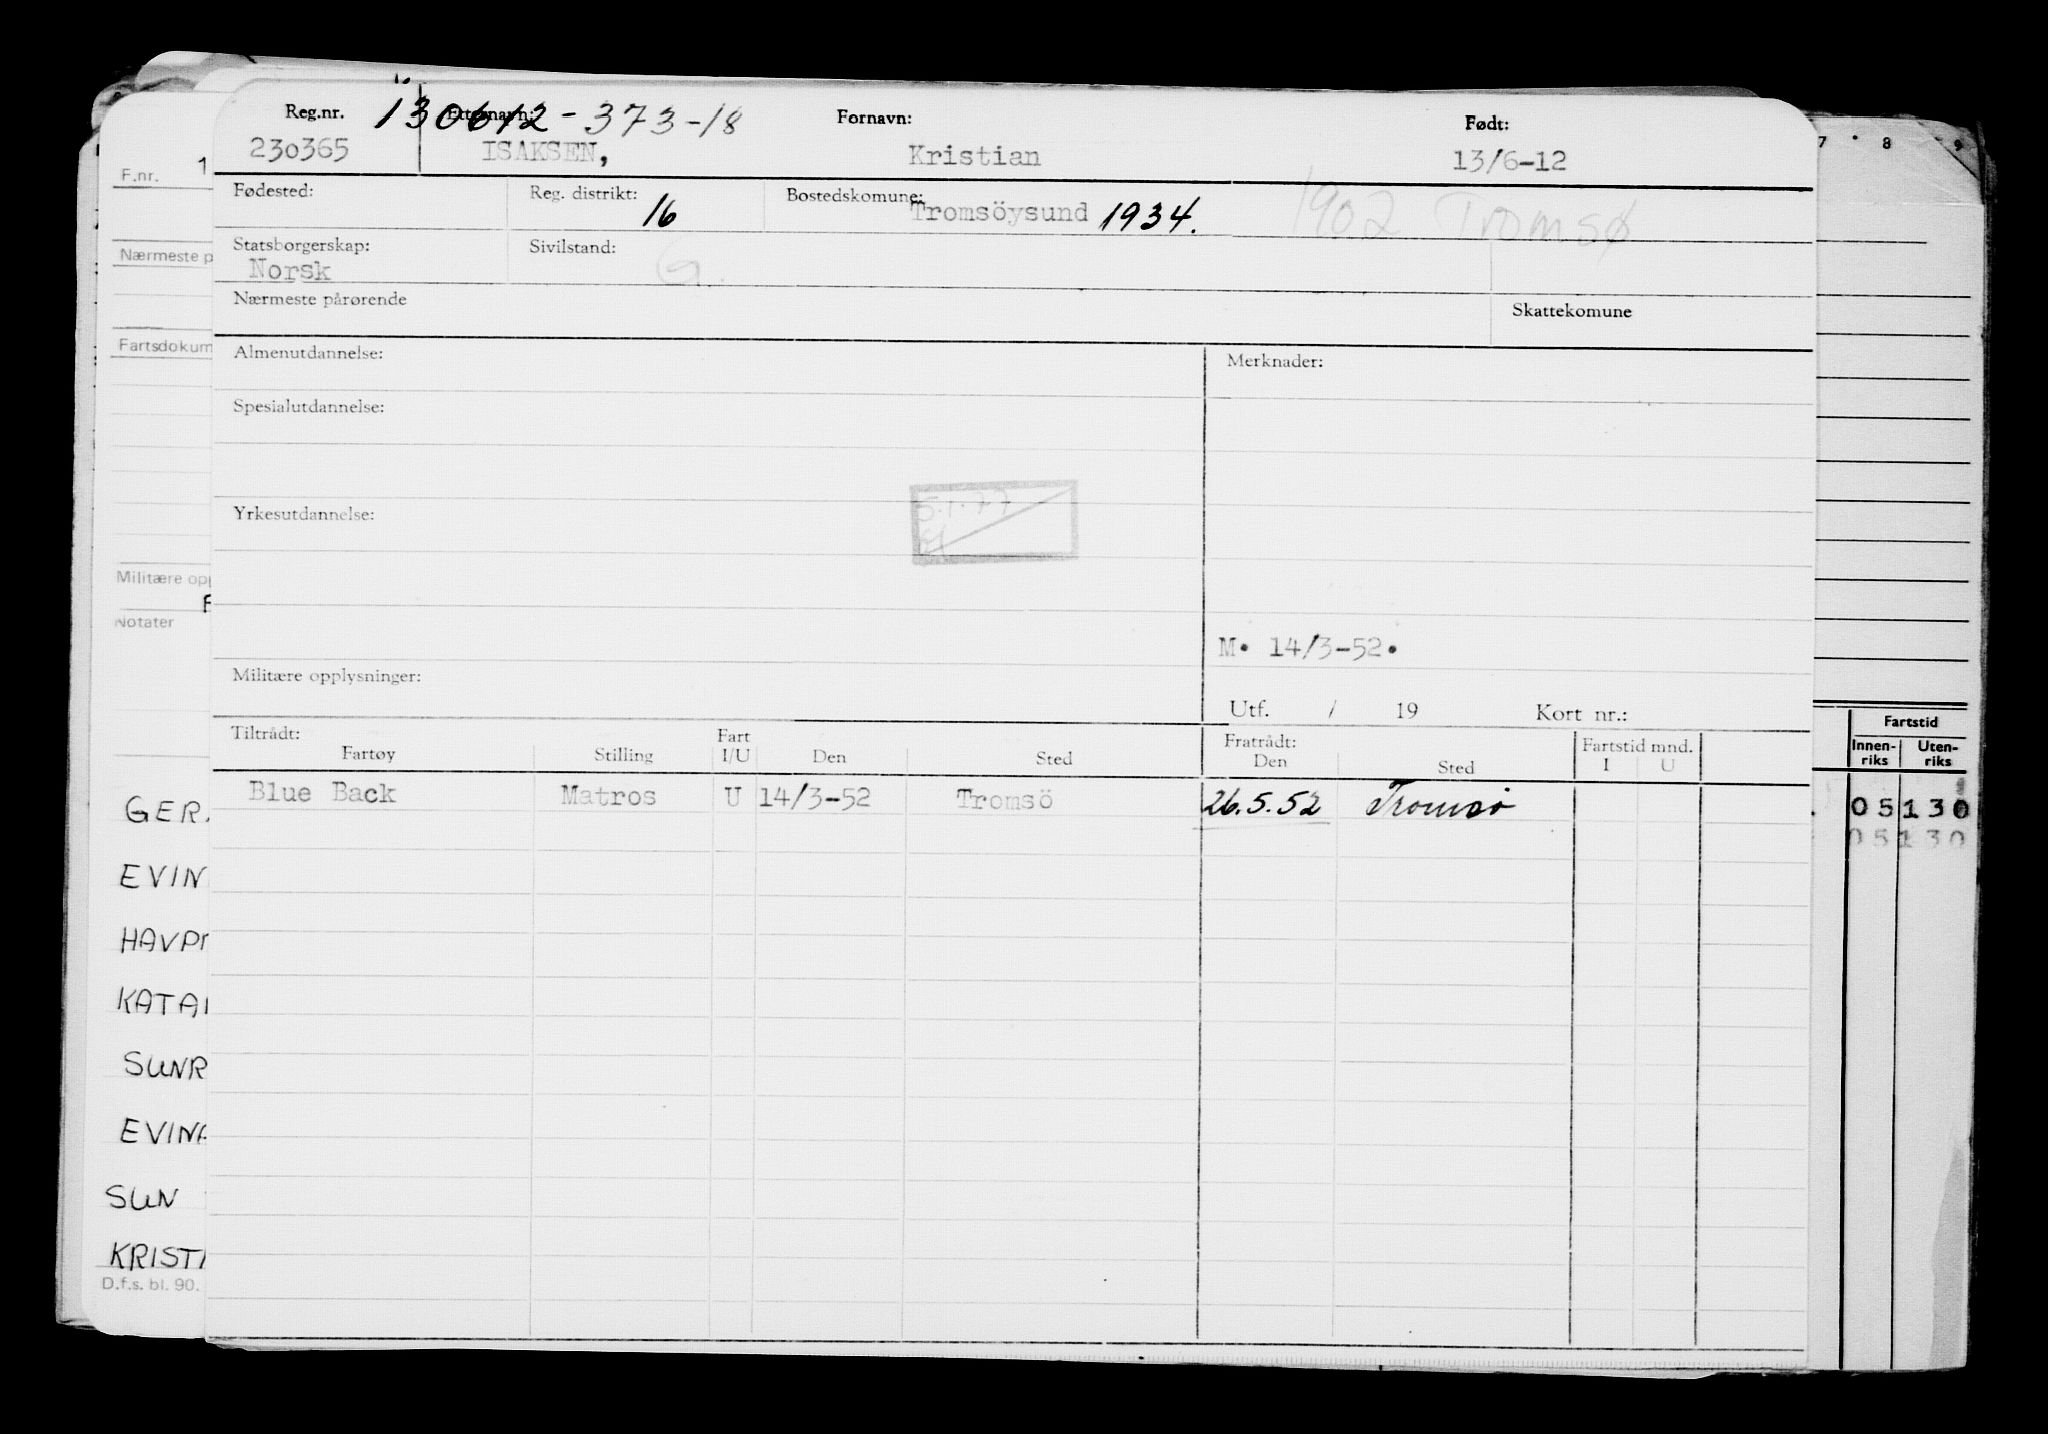 Reg.nr. 130612-373-18 Etternavn: Fornavn: Født:
230365 ISAKSEN, Kristian 13/6-12
Fødested: Reg. distrikt: 16 Bostedskomune: Tromsöysund 1934. 1902 Tromsø
Statsborgerskap: Norsk Sivilstand: G.
Nærmeste pårørende Skattekomune
Almenutdannelse: Merknader:
Spesialutdannelse:
5.1.77
Yrkesutdannelse:
M. 14/3-52.
Militære opplysninger:
Utf. / 19 Kort nr.:
Tiltrådt: Fratrådt: Fartstid mnd.
Fartøy Stilling Fart I/U Den Sted Den Sted I U
Blue Back Matros U 14/3-52 Tromsö 26.5.52 Tromsø
F.nr. 1
Nærmeste p
Fartsdokum
Militære opp
F
Notater
GER
EVIN
HAVP
KATA
SUNR
EVINA
SUN
KRISTI
D.f.s. bl. 90.
7 8 9
Fartstid
Innen-riks Uten-riks
05 130
05 130